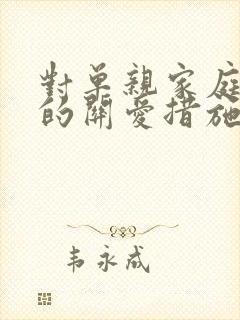 對單親家庭
的關愛措施
韦永成